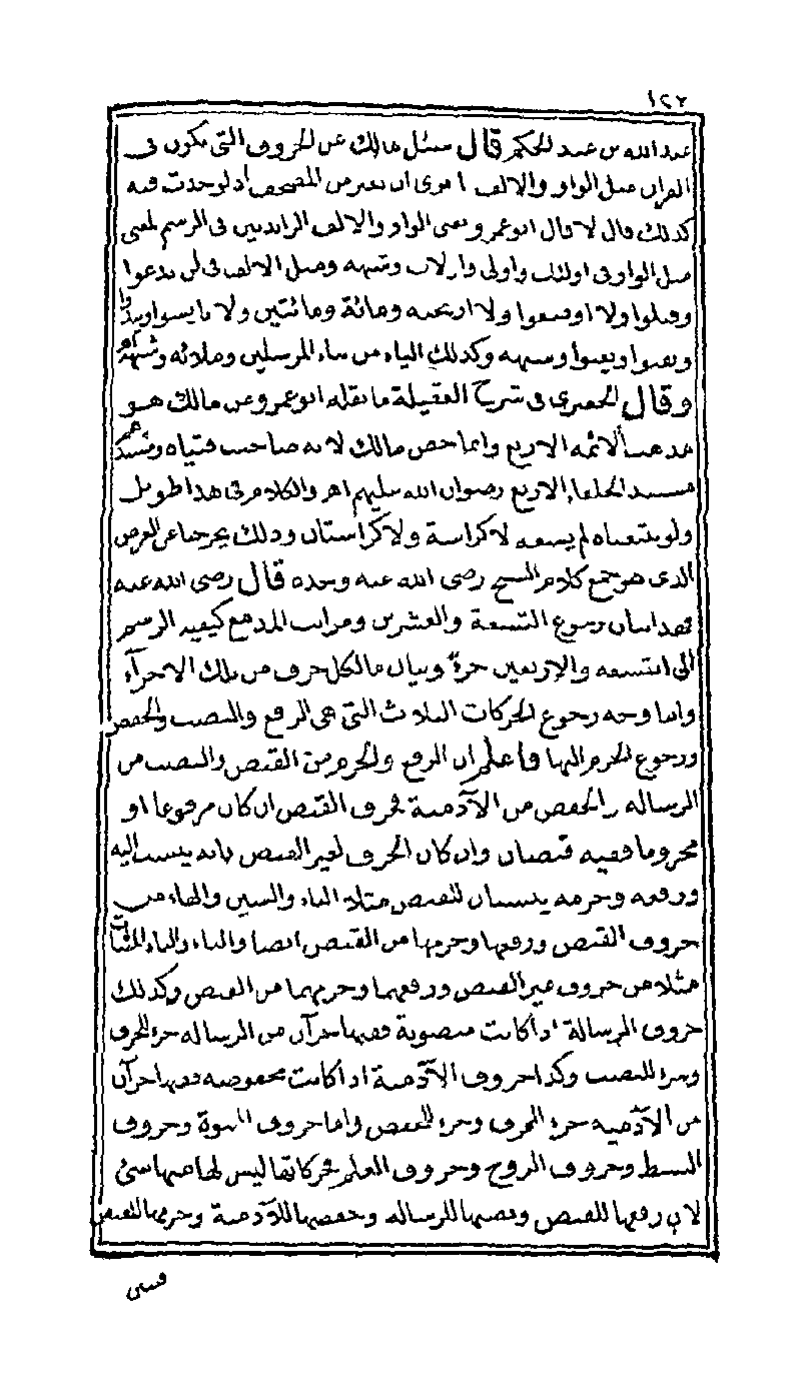 ١٢٢
عبد الله بن عبد الحكم قال سئل مالك عن الحروف التي تكون في
القران مثل الواو والالف اترى ان تغير من المصحف اذا وجدت فيه
كذلك قال لا قال ابو عمرو يعنى الواو والالف الزايدتين في الرسم لمعنى
مثل الواو في اولئك واولى واولات وشبهه ومثل الالف في لن ندعوا
وقتلوا ولا اوضعوا ولا اذبحنه ومائة ومائتين ولا تايسوا ويبدوا
وتفتوا ويعبوا وشبهه وكذلك الياء من نباء المرسلين وملائه وشبهه اهـ
وقال الجعبرى في شرح العقيلة ما نقله ابو عمرو عن مالك هو
مذهب الائمه الاربع وانما خص مالك لانه صاحب فتياه ومستندهم
مستند الخلفاء الاربع رضوان الله عليهم اهـ والكلام في هذا طويل
ولو تتبعناه لم يسعه لا كراسة ولا كراستان وذلك يخرجنا عن الغرض
الذى هو جمع كلام الشيخ رضى الله عنه وحده قال رضى الله عنه
فهذا بيان رجوع التسعة والعشرين ومراتب المد مع كيفيه الرسم
الى التسعه والاربعين جزءً وبيان ما لكل حرف من تلك الاجزآء
واما وجه رجوع الحركات الثلاث التي هي الرفع والنصب والخفض
ورجوع الجزم اليها فاعلم ان الرفع والجزم من القبض والنصب من
الرساله والخفض من الآدمية فحرف القبض ان كان مرفوعا او
مجزوما ففيه قبضان وان كان الحرف لغير القبض فانه ينسب اليه
ورفعه وجزمه ينسبان للقبض مثلا التاء والسين والهاء من
حروف القبض ورفعها وجزمها من القبض ايضا والباء والثاء المثلثة
مثلا من حروف غير القبض ورفعهما وجزمهما من القبض وكذلك
حروف الرسالة اذا كانت منصوبة ففيها جزآن من الرساله جزء للحرف
وجزء للنصب وكذا حروف الآدمية اذا كانت مخفوضه ففيها جزآن
من الآدميه جزء للحرف وجزء للخفض واما حروف النبوة وحروف
البسط وحروف الروح وحروف العلم فحركاتها ليس لها منها شئ
لان رفعها للقبض ونصبها للرساله وخفضها للآدمية وجزمها للقبض